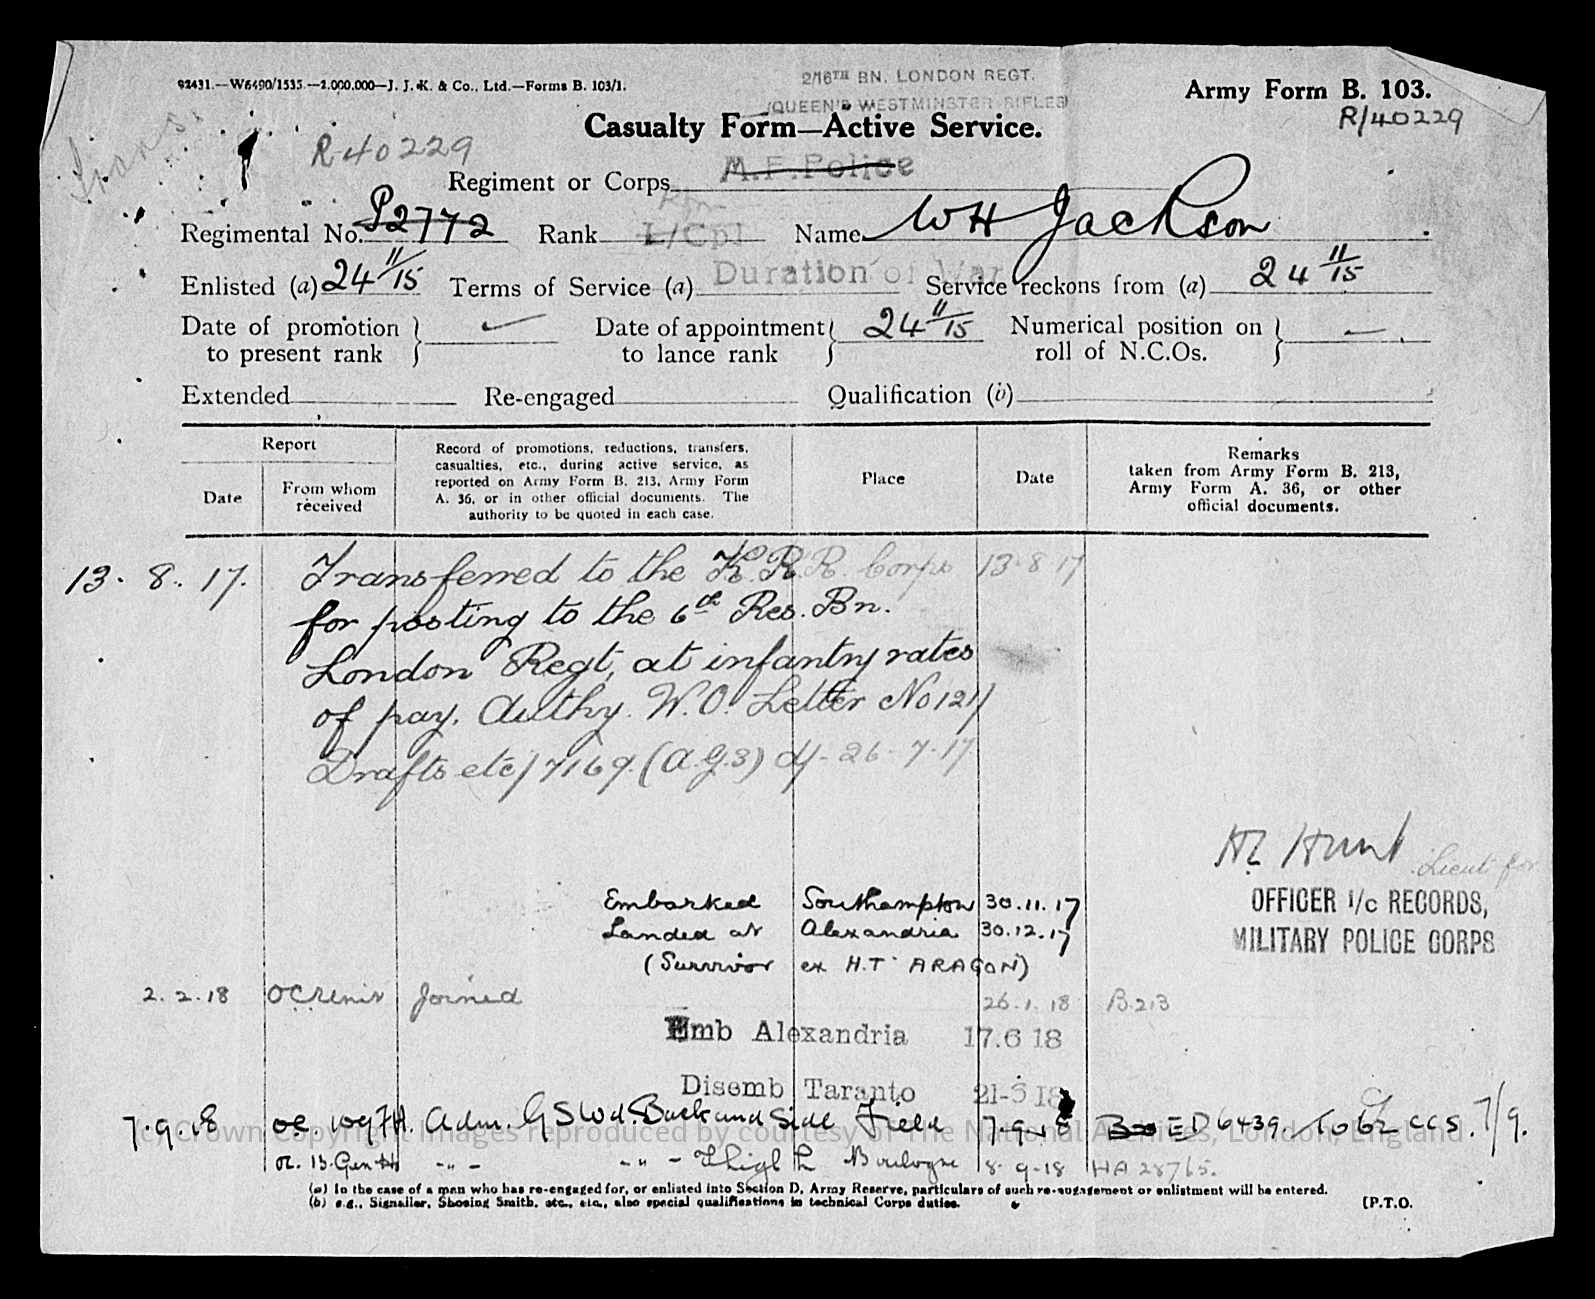 92431.—W6490/1535.—2,000,000—J. J. K. & Co., Ltd.—Forms B. 103/1.
2/16TH BN. LONDON REGT.
(QUEEN'S WESTMINSTER RIFLES)
Army Form B. 103.
R/40229
Casualty Form—Active Service.
R-40229
Regiment or Corps M.F. Police
Regimental No. P2772 Rank L/Cpl Name WH Jackson
Enlisted (a) 24 11/15 Terms of Service (a) Duration of War Service reckons from (a) 24 11/15
Date of promotion to present rank } Date of appointment to lance rank } 24 11/15 Numerical position on roll of N.C.Os. } —
Extended Re-engaged Qualification (b)
Report
Date
From whom received
Record of promotions, reductions, transfers, casualties, etc., during active service, as reported on Army Form B. 213, Army Form A. 36, or in other official documents. The authority to be quoted in each case.
Place
Date
Remarks taken from Army Form B. 213, Army Form A. 36, or other official documents.
13. 8. 17. Transferred to the K.R.R. Corps 13-8-17
for posting to the 6th Res. Bn.
London Regt, at infantry rates
of pay. Authy. W.O. Letter No 121/
Drafts etc/7169. (A.G.3) d/- 26-7-17
Hunt Lieut for
OFFICER i/c RECORDS,
MILITARY POLICE CORPS
Embarked Southampton 30.11.17
Landed at Alexandria 30.12.17
(Survivor ex H.T. ARAGON)
2.2.18 OC Unit Joined 26.1.18 B.213
Emb Alexandria 17.6 18
Disemb Taranto 21-6 18
7.9.18 Adm. GSWd. Back and Side Field 7.9.18 ED 6439. To 62 CCS. 7/9.
(c) Crown Copyright Images reproduced by courtesy of The National Archives, London, England
13. Gen H -"- -"- Thigh L Boulogne 8-9-18 HA 28765.
(a) In the case of a man who has re-engaged for, or enlisted into Section D, Army Reserve, particulars of such re-engagement or enlistment will be entered.
(b) e.g., Signaller, Shoeing Smith, etc., etc., also special qualifications in technical Corps duties.
[P.T.O.